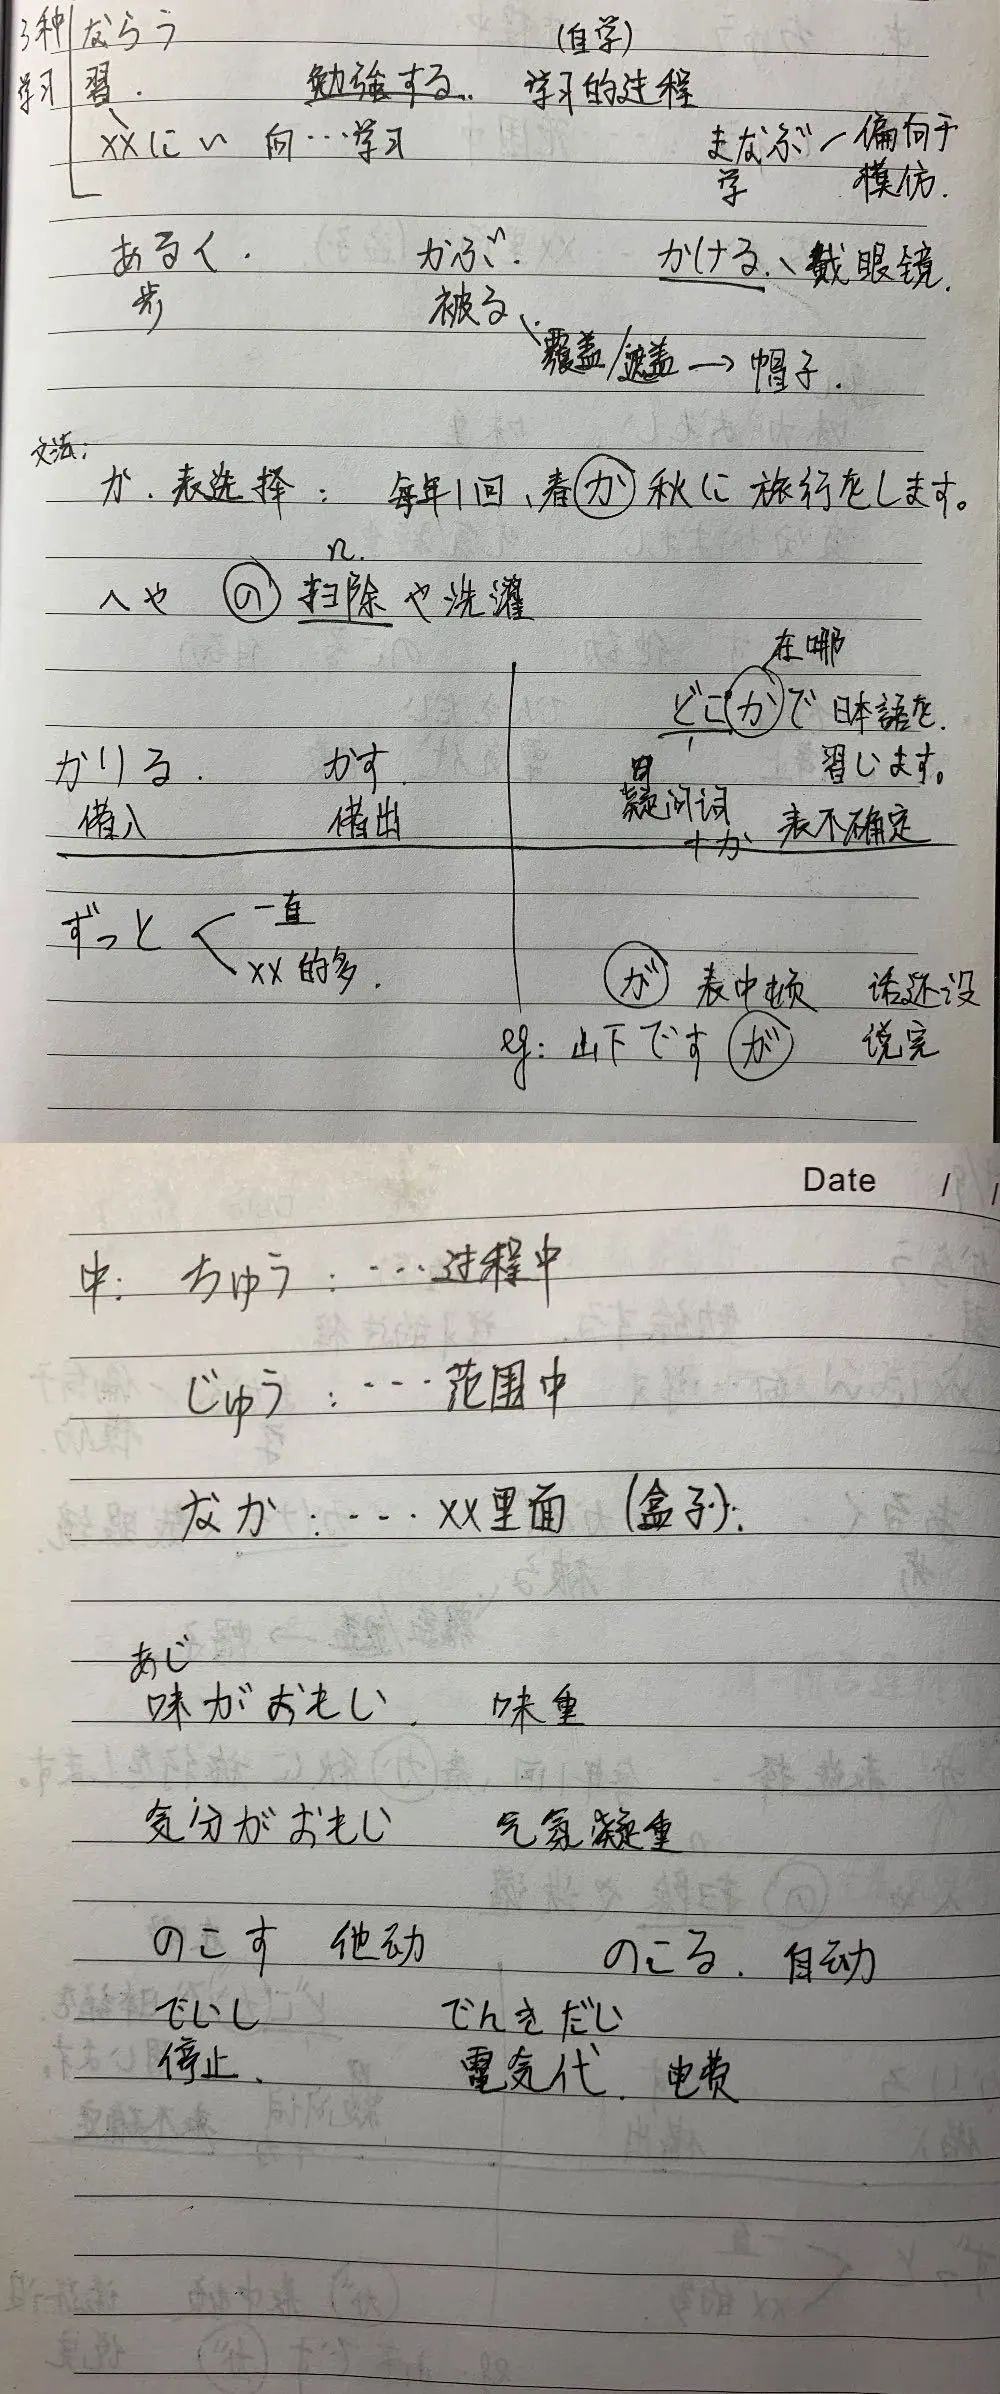 3种 ならう (自学)
学习 習. 勉強する.. 学习的过程
XXにい 向…学习 まなぶ 偏向于
学 模仿.
あるく. かぶ. かける. 戴眼镜.
歩 被る
覆盖/遮盖 → 帽子.
文法:
か. 表选择: 毎年1回、春か秋に旅行をします。
n.
へや の 扫除 や洗濯
在哪
どこかで 日本語を.
かりる. かす. 習します。
借入 借出 疑问词
+か 表不确定
ずっと 一直
XX的多.
が 表中顿 话还没
eg: 山下ですが 说完
Date / /
中: ちゅう: ···过程中
じゅう: ---范围中
なか: ---- XX里面 (盒子).
あじ
味がおもい. 味重
気分がおもい 气氛凝重
のこす 他动 のこる. 自动
でいし でんきだい
停止. 電気代. 电费